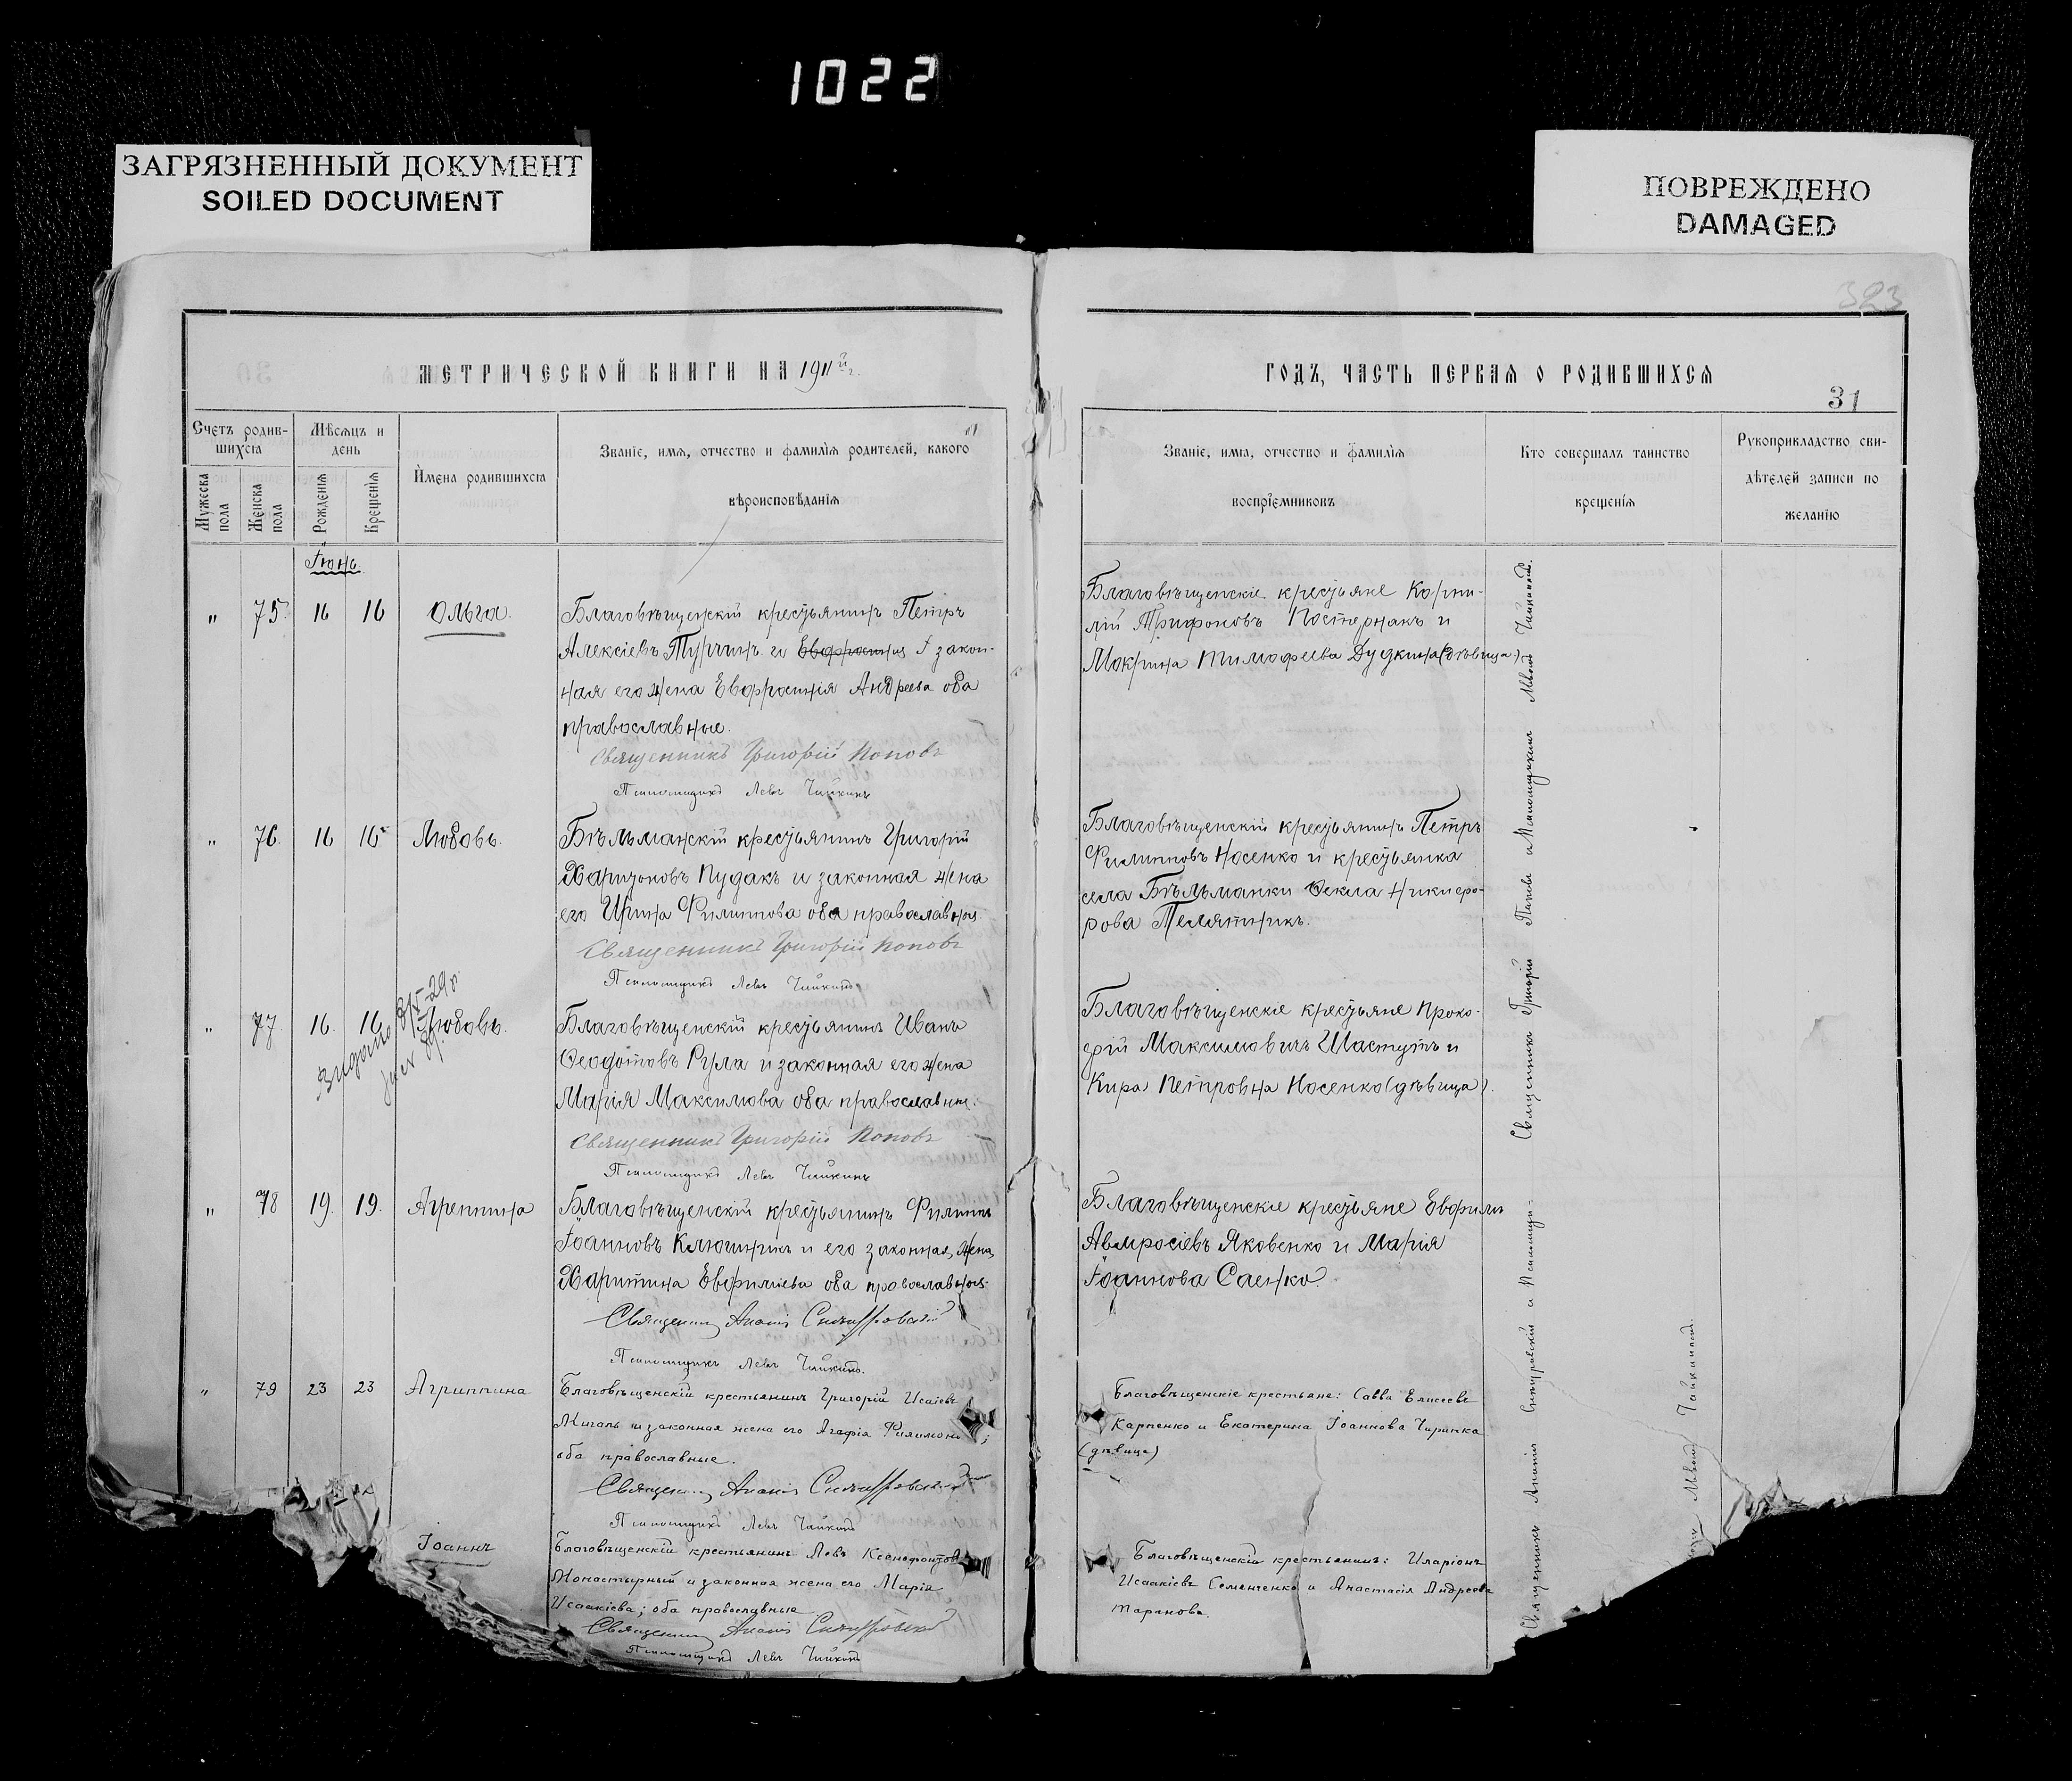 1022
ЗАГРЯЗНЕННЫЙ ДОКУМЕНТ
SOILED DOCUMENT
ПОВРЕЖДЕНО
DAMAGED
323
МЕТРИЧЕСКОЙ КНИГИ НА 1911й г.
ГОДЪ, ЧАСТЬ ПЕРВАЯ О РОДИВШИХСЯ
31
Счетъ родив-
шихся
Мужеска пола
Женска пола
Мѣсяцъ и
день
Рожденія
Крещенія
Имена родившихся
Званіе, имя, отчество и фамилія родителей, какого
вѣроисповѣданія
Званіе, имя, отчество и фамилія
воспріемниковъ
Кто совершалъ таинство
крещенія
Рукоприкладство сви-
дѣтелей записи по
желанію
Іюнь
" 75. 16 16 Ольга.
Благовѣщенскій крестьянинъ Петръ
Алексіевъ Турчинъ и Евфросинія закон-
ная его жена Евфросинія Андреева оба
православные.
Священникъ Григорій Поповъ
Псаломщикъ Левъ Чайкинъ
Благовѣщенскіе крестьяне Корни-
лій Трифоновъ Постернакъ и
Макрина Тимофеева Дудкина (дѣвица)
" 76. 16 16 Любовь.
Бѣльманскій крестьянинъ Григорій
Харитоновъ Пудакъ и законная жена
его Ирина Филиппова оба православные.
Священникъ Григорій Поповъ
Псаломщикъ Левъ Чайкинъ
Благовѣщенскій крестьянинъ Петръ
Филипповъ Носенко и крестьянка
села Бѣльманки Ѳекла Никифо-
рова Телятникъ.
" 77. 16. 16. Любовь.
Благовѣщенскій крестьянинъ Иванъ
Ѳеодотовъ Рула и законная его жена
Марія Максимова оба православные.
Священникъ Григорій Поповъ
Псаломщикъ Левъ Чайкинъ
Благовѣщенскіе крестьяне Проко-
фій Максимовичъ Шастунъ и
Кира Петровна Носенко (дѣвица).
" 78 19. 19. Агреппина
Благовѣщенскій крестьянинъ Филиппъ
Іоанновъ Ключникъ и его законная жена
Харитина Евфиміева оба православные.
Священникъ Ананія
Псаломщикъ Левъ Чайкинъ.
Благовѣщенскіе крестьяне Евфимъ
Амвросіевъ Яковенко и Марія
Іоаннова Саенко.
" 79 23 23 Агриппина
Благовѣщенскій крестьянинъ Григорій Исаіевъ
Мигаль и законная жена его Агафія Филимоно ;
оба православные.
Священникъ Ананія
Псаломщикъ Левъ Чайкинъ
Благовѣщенскіе крестьяне: Савва Елисеевъ
Карпенко и Екатерина Іоаннова Чирипка
(дѣвица)
Іоаннъ
Благовѣщенскій крестьянинъ Левъ Ксенофонтовъ
Монастырный и законная жена его Марія
Исаакіева; оба православные
Священникъ Ананія
Псаломщикъ Левъ Чайкинъ
Благовѣщенскій крестьянинъ: Иларіонъ
Исаакіевъ Семенченко и Анастасія Андреева
Таранова.
Священникъ Григорій Поповъ и Псаломщикъ Левъ Чайкинъ.
Священникъ Ананія и Псаломщи-
Львомъ Чайкинымъ.